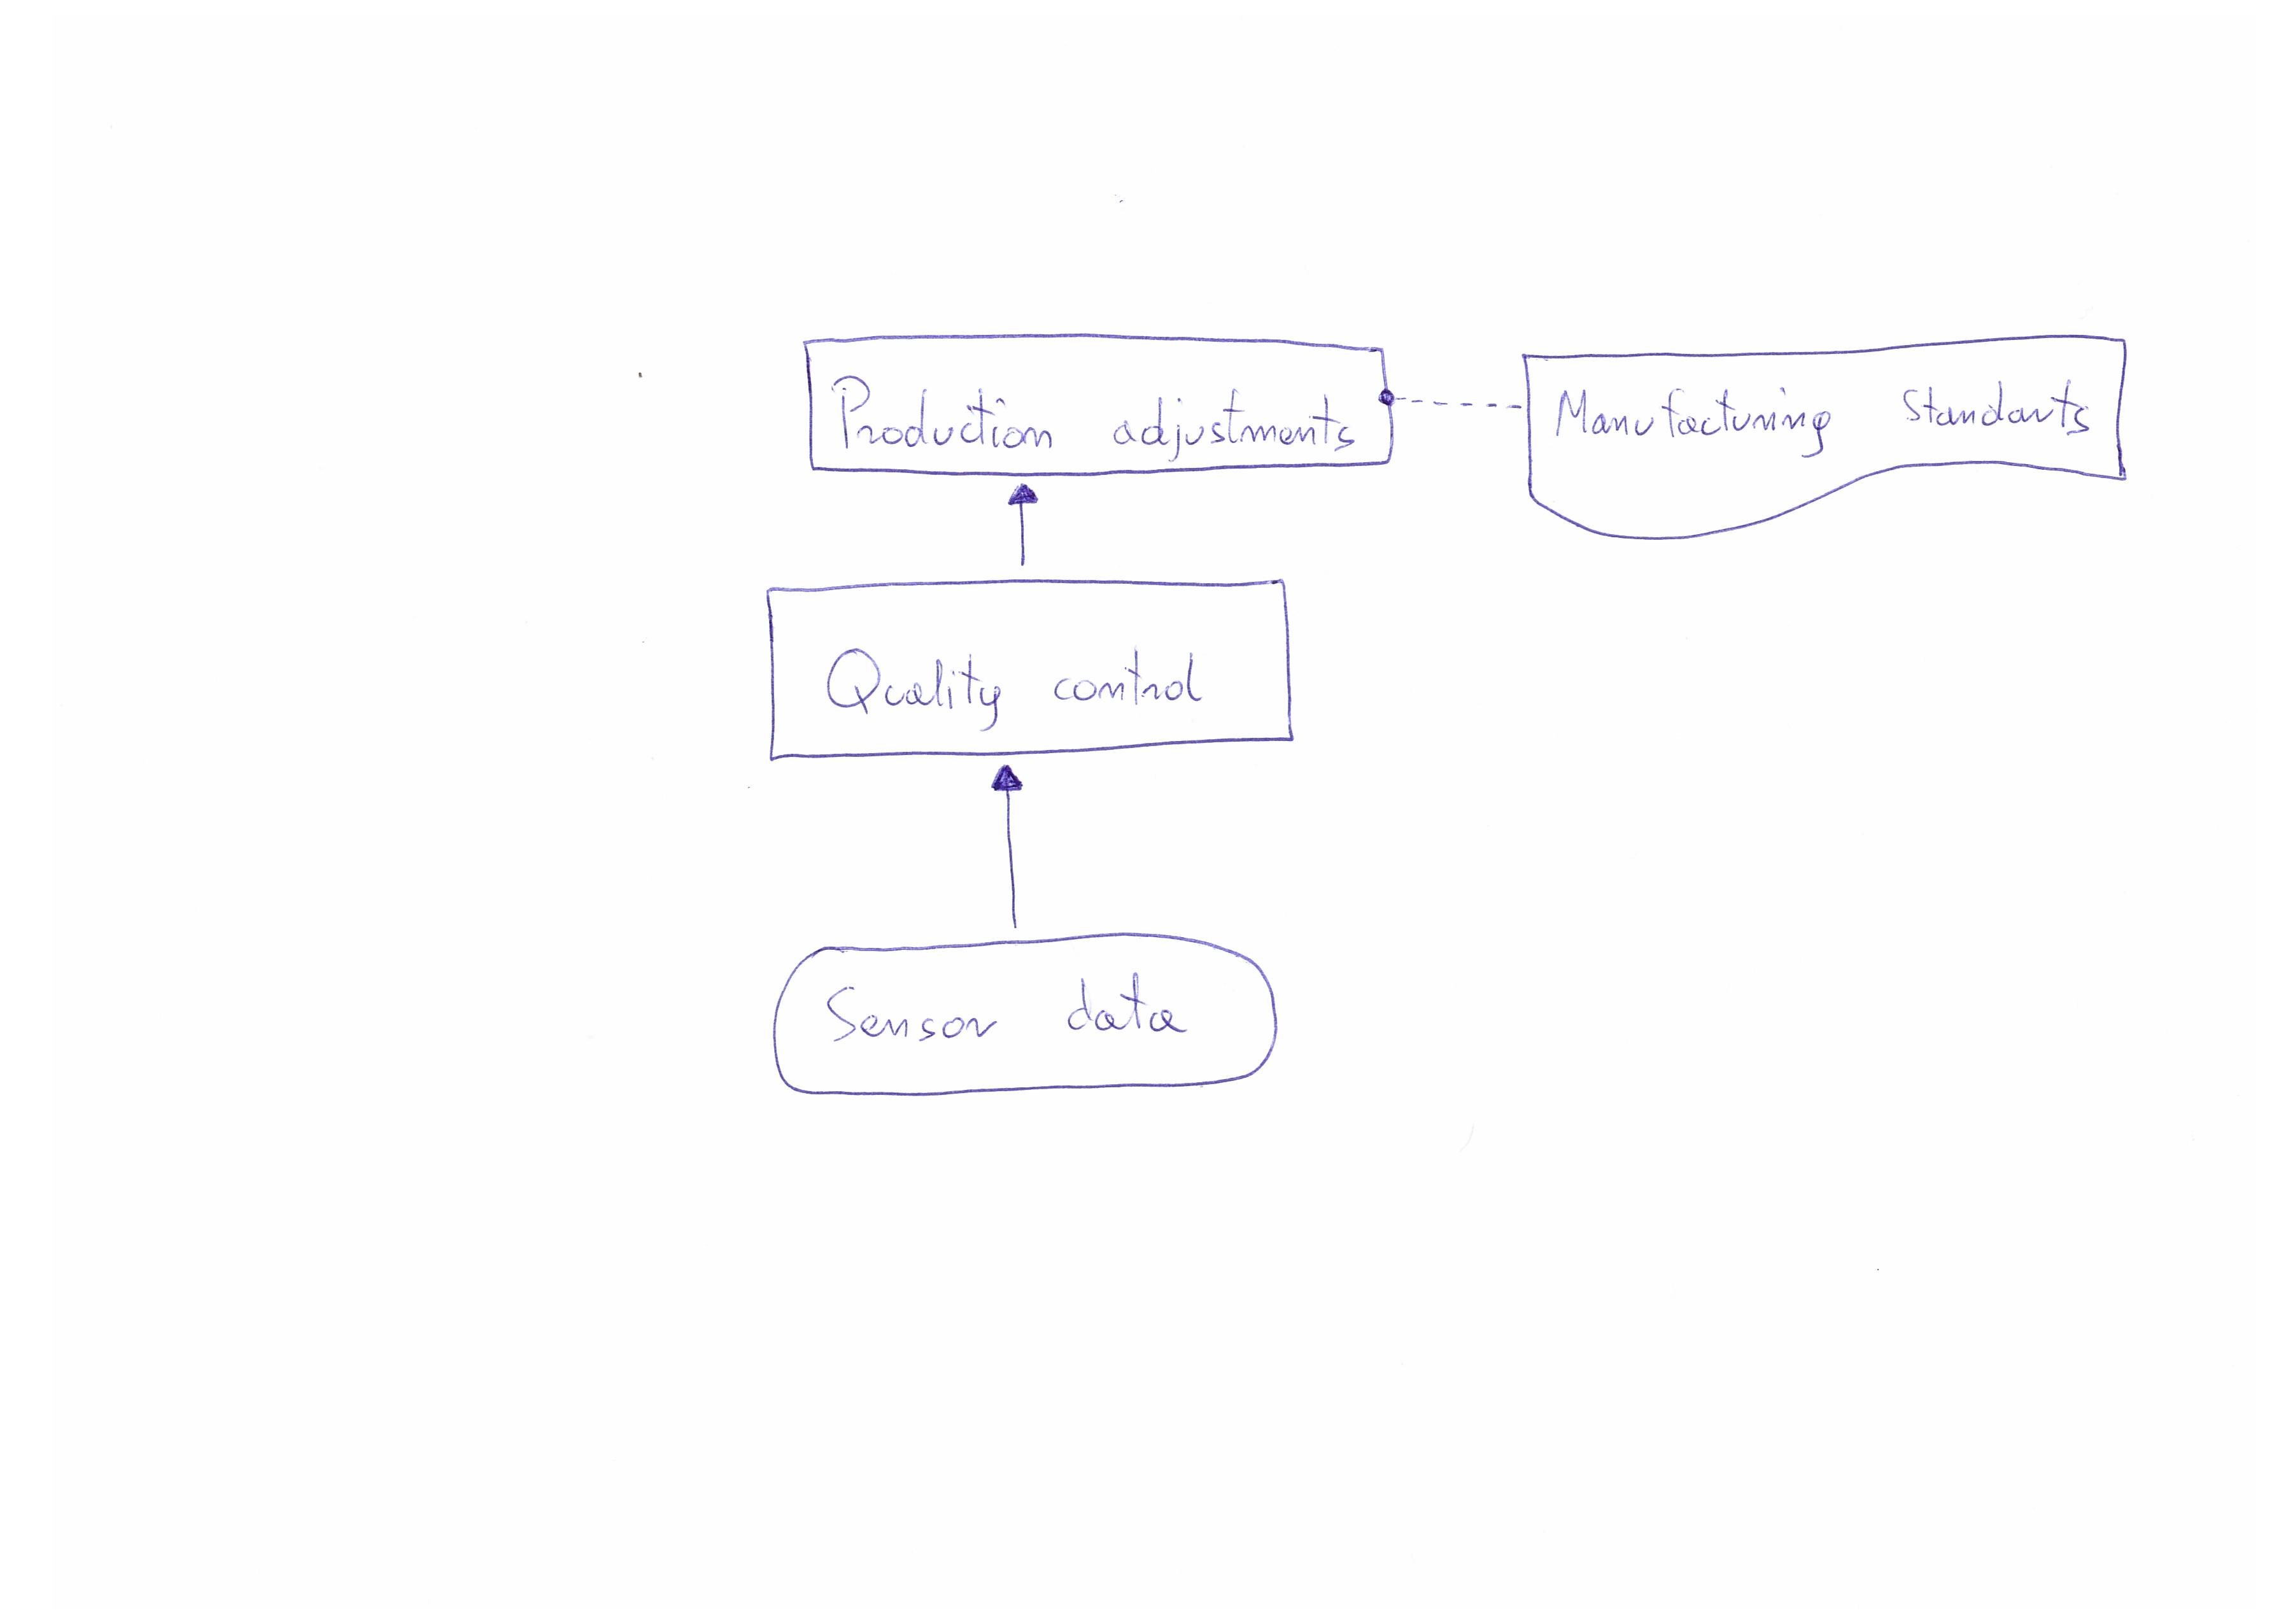 Production adjustments
Manufacturing Standarts
Quality control
Sensor data